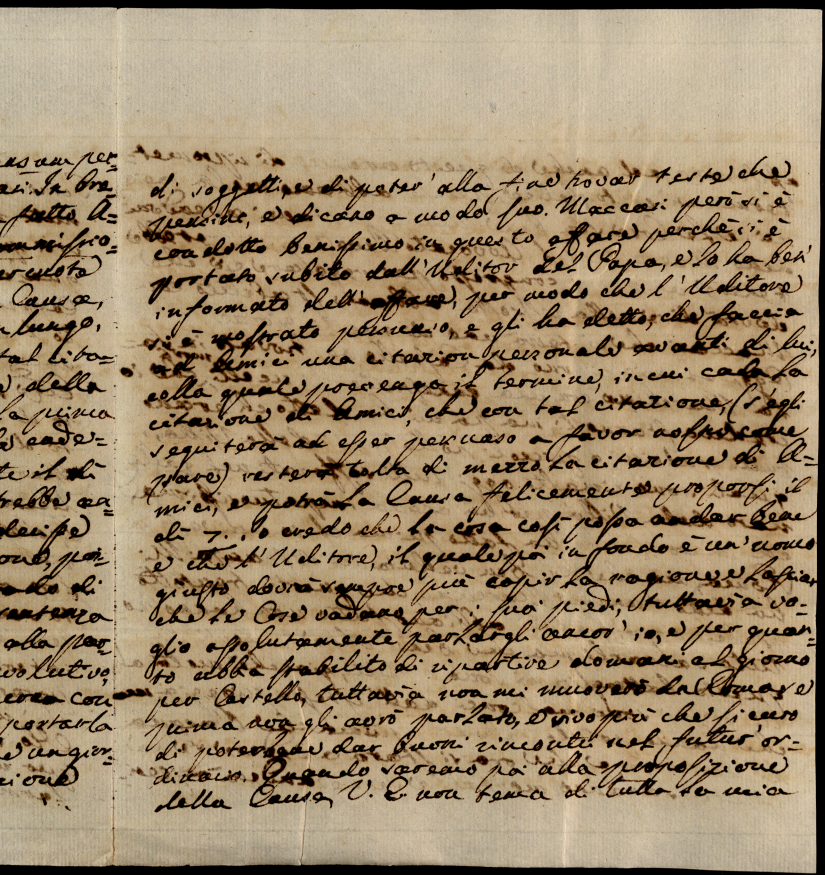 ens um per=
In bre=
fatto A=
mmissio=
remota
Causa,
lungo,
tal cita=
della
la prima
cade=
te il dì
trebbe
decise
one, per
ado di
sentenza
alla par
evolutivo,
con
portarla
un gior
zione
di soggetti, e di poter' alla fine trovar teste che
pensino, e dicano a modo suo. Maccari però si è
condotto benissimo in questo affare perchè si è
portato subito dall' Uditor del Papa, e lo ha ben
informato dell' affare, per modo che l' Uditore
si è mostrato persuaso, e gli ha detto, che faccia
ad Amici una citazion personale avanti di lui,
colla quale prevenga il termine, in cui cada la
citazione di Amici, che con tal citazione, (s' egli
seguiterà ad esser persuaso a favor nostro come
pare) resterà tolta di mezzo la citazione di A=
mici, e potrà la Causa felicemente proporsi il
dì 7. Io credo che la cosa così possa andar bene
e che l' Uditore, il quale poi in fondo è un' uomo
giusto dovrà sempre più capir la ragione, e lasciar
che le Cose vadano per i suoi piedi, tuttavia vo=
glio assolutamente parlargli ancor' io, e per quan=
to abbia stabilito di ripartire domani al giorno
per Castello, tuttavia non mi muoverò da
prima non gli avrò parlato, e vivo più che sicuro
di potergliene dar buoni riscontri nel futur' or=
dinario. Quando saremo poi alla proposizione
della Causa, V. E. non tema di tutta la mia